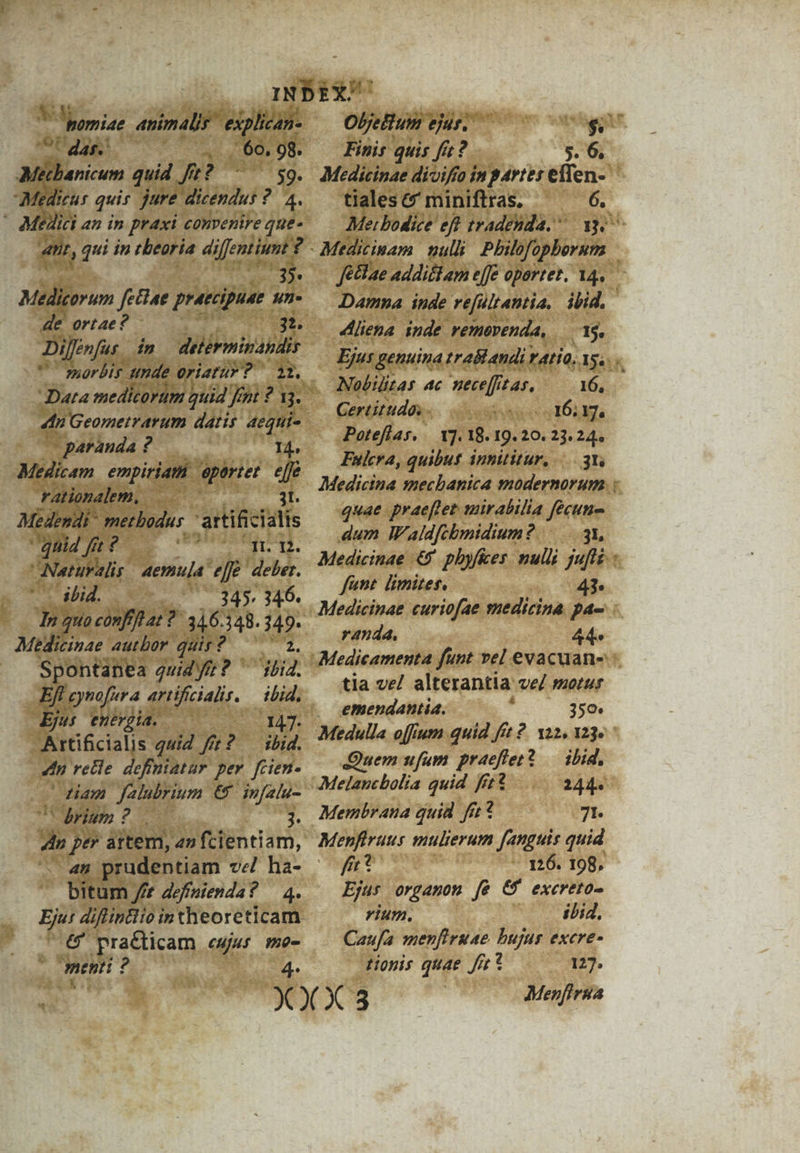 INDEX.
nomiae animalis explican-
das. 60. 98.
Mechanicum quid ſit? 59.
Medicus quis jure dicendus? 4.
Medici an in praxi convenire que-
ant, qui in theoria diſſentiunt?
35.
Medicorum ſectae praecipuae un-
de ortae? 32.
Diſſenſus in determinandis
morbis unde oriatur? 22.
Data medicorum quid ſint? 13.
An Geometrarum datis aequi-
paranda? 14.
Medicam empiriam oportet eſſe
rationalem. 31.
Medendi methodus artificialis
quid ſit? 11. 12.
Naturalis aemula eſſe debet.
ibid. 345. 346.
In quo conſiſtat? 346.348.349.
Medicinae author quis? 2.
Spontanea quid ſit? ibid.
Eſt cynoſura artificialis. ibid.
Ejus energia. 147.
Artificialis quid ſit? ibid.
An recte definiatur per ſcien-
tiam ſalubrium & inſalu-
brium? 3.
An per artem, an ſcientiam,
an prudentiam vel ha-
bitum ſit definienda? 4.
Ejus diſtinctio in theoreticam
& practicam cujus mo-
menti? 4.
Objectum ejus. 5.
Finis quis ſit? 5. 6.
Medicinae diviſio in partes eſſen-
tiales & miniſtras. 6.
Methodice eſt tradenda. 13.
Medicinam nulli Philoſophorum
ſectae addictam eſſe oportet. 14.
Damna inde reſultantia. ibid.
Aliena inde removenda. 15.
Ejus genuina tractandi ratio. 15.
Nobilitas ac neceſſitas. 16.
Certitudo. 16. 17.
Poteſtas. 17. 18. 19. 20. 23. 24.
Fulcra, quibus innititur. 31.
Medicina mechanica modernorum
quae praeſtet mirabilia ſecun-
dum Waldſchmidium? 31.
Medicinae & phyſices nulli juſti
ſunt limites. 43.
Medicinae curioſae medicina pa-
randa. 44.
Medicamenta ſunt vel evacuan-
tia vel alterantia vel motus
emendantia. 350.
Medulla oſſium quid ſit? 122. 123.
Quem uſum praeſtet? ibid.
Melancholia quid ſit? 244.
Membrana quid ſit? 71.
Menſtruus mulierum ſanguis quid
ſit? 126. 198.
Ejus organon ſe & excreto-
rium. ibid.
Cauſa menſtruae hujus excre-
tionis quae ſit? 127.
)( )( )( 3 Menſtrua